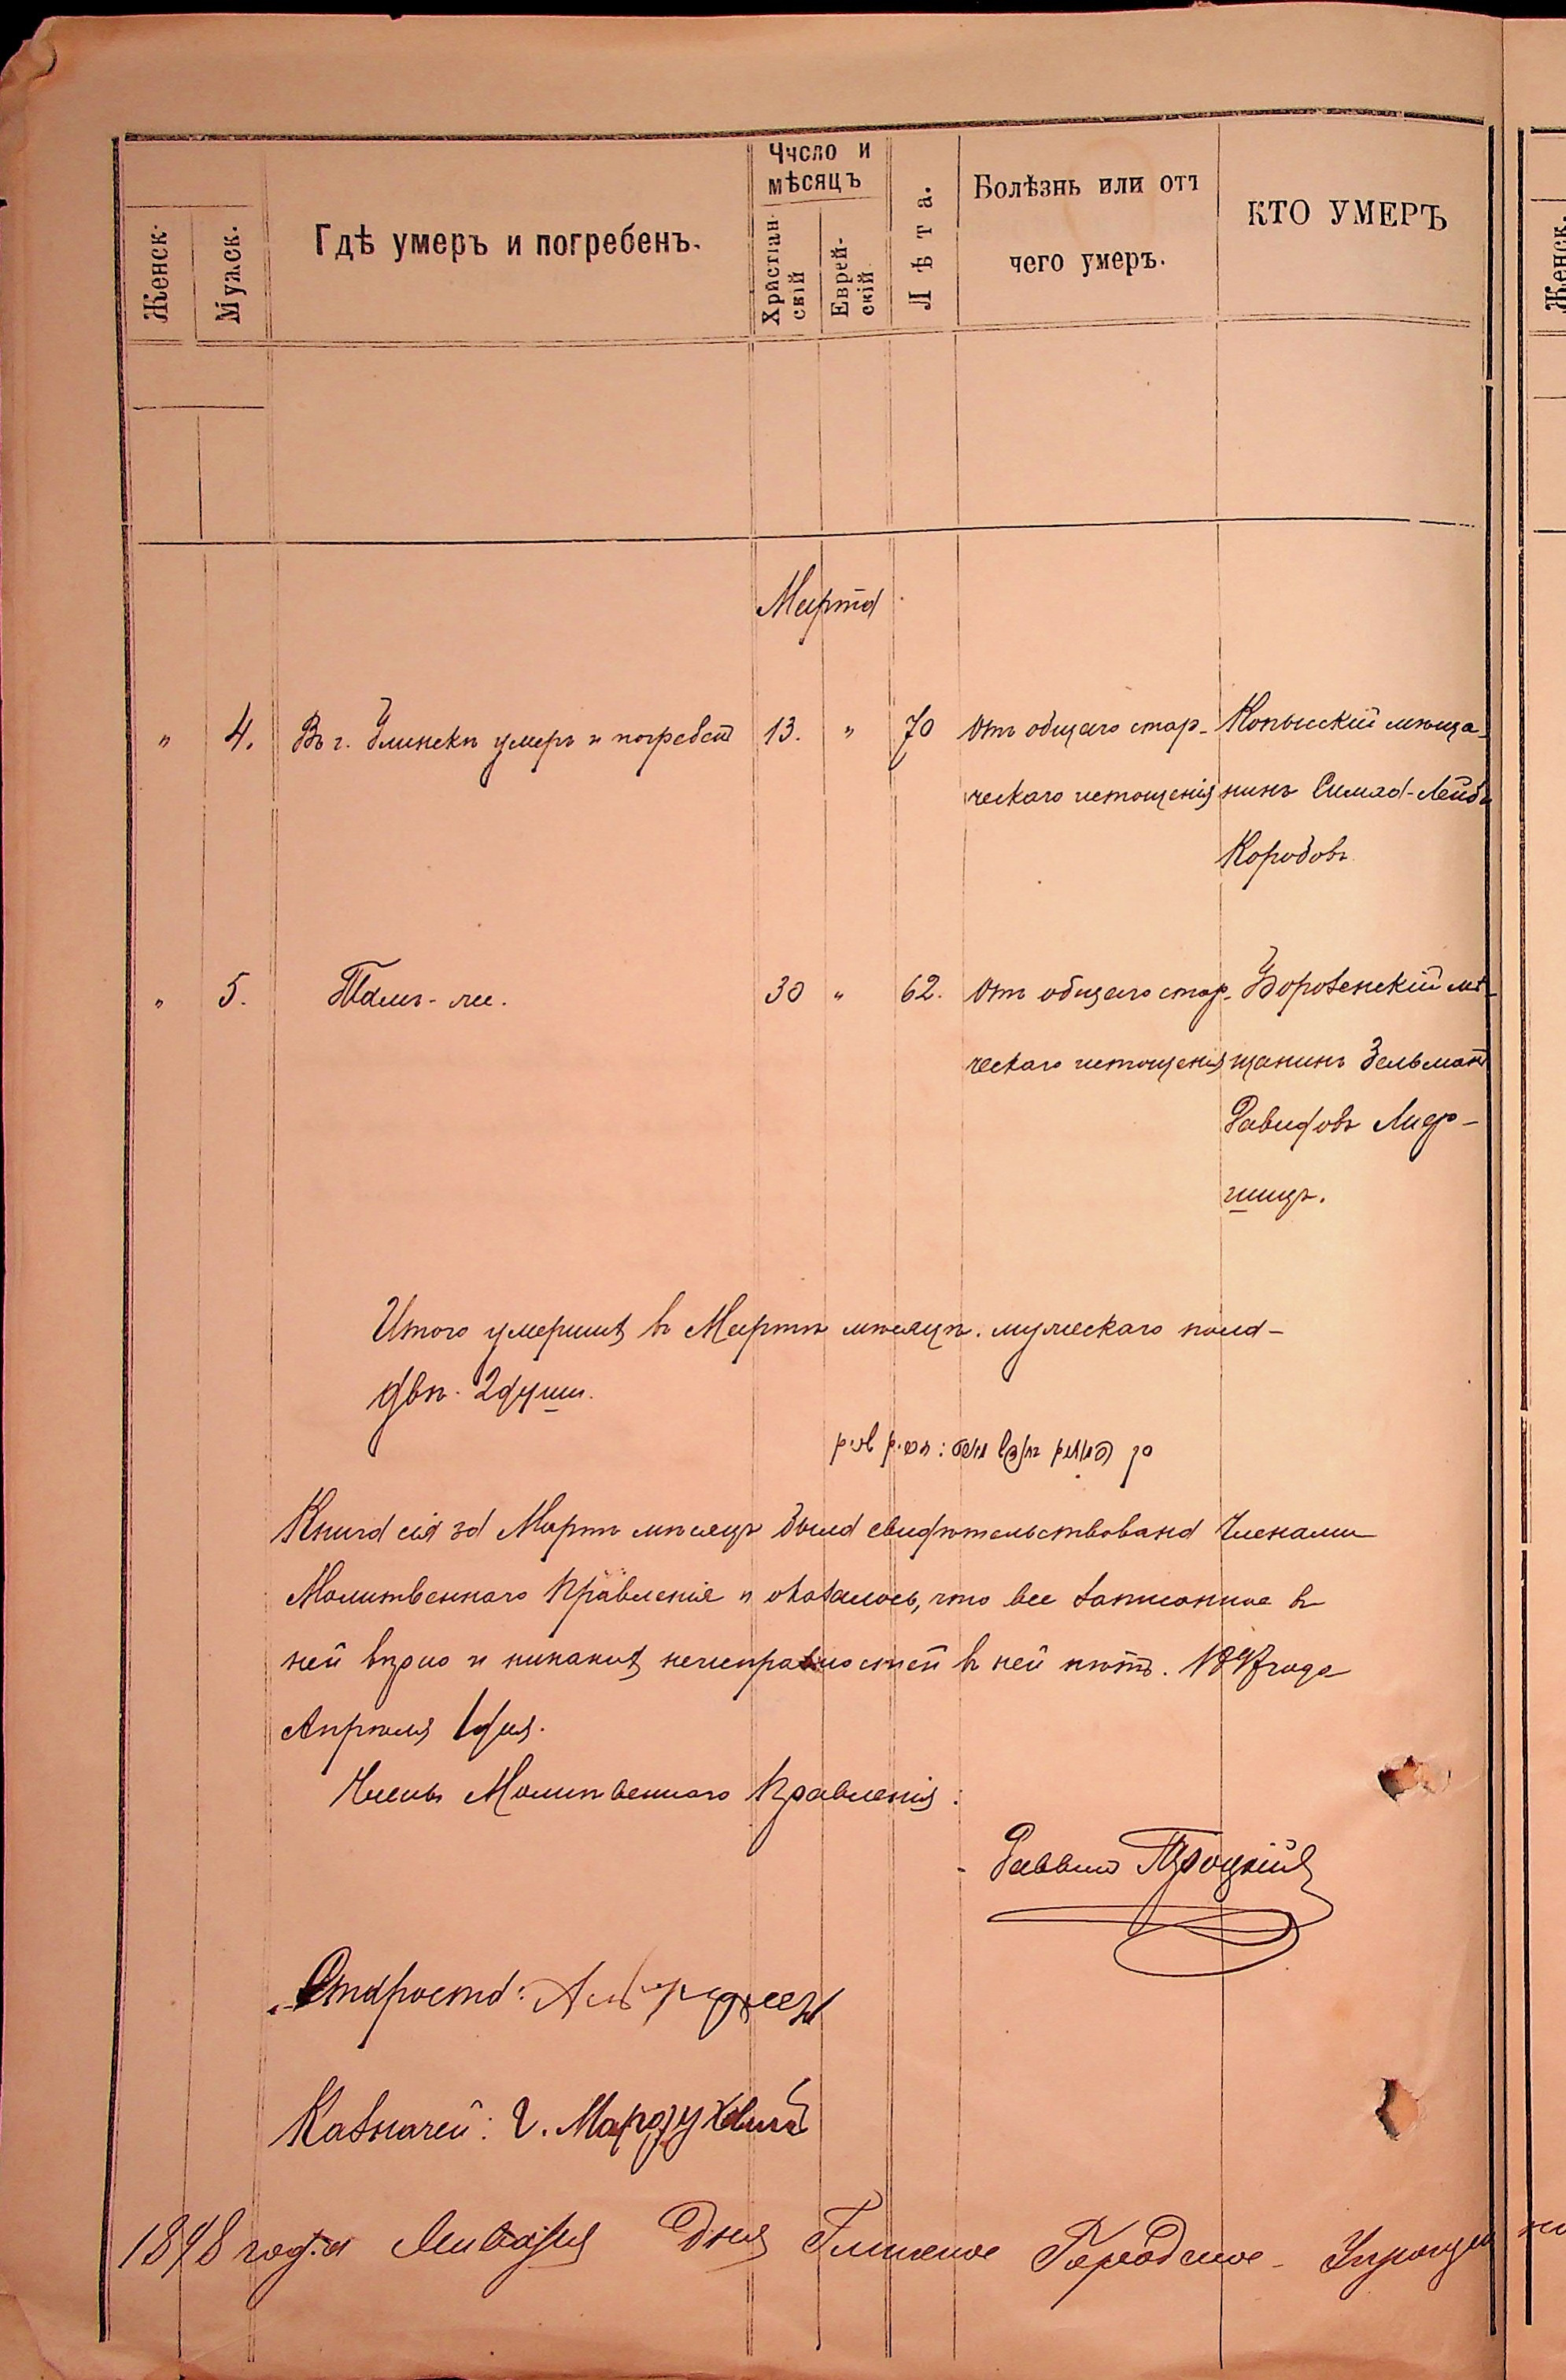 Число и
мѣсяцъ
Женск.
Мужск.
Гдѣ умеръ и погребенъ.
Христіан-
скій
Еврей-
скій
Лѣта.
Болѣзнь или отъ
чего умеръ.
КТО УМЕРЪ
Женск.
Марта
" 4. Въ г. Глинскѣ умеръ и погребенъ 13. " 70 отъ общаго стар- Копысскій мѣща-
ческаго истощенія нинъ Симха-Лейба
Коробовъ
" 5. Тамъ-же. 30 " 62. Отъ общаго стар- мѣ-
ческаго истощенія щанинъ Зельманъ
Давидовъ
Итого умершихъ въ Мартѣ мѣсяцѣ мужескаго пола-
двѣ 2 души.
Книга сія за Мартъ мѣсяцъ была свидѣтельствована Членами
Молитвеннаго Правленія и оказалось, что все записанное въ
ней вѣрно и никакихъ неисправностей въ ней нѣтъ. 1897 года
Апрѣля 1 дня.
Члены Молитвеннаго Правленія:
Раввинъ Троцкій
Староста:
Казначей: Г. Мордуховичъ
1898 года Января Дня Глинское Городское